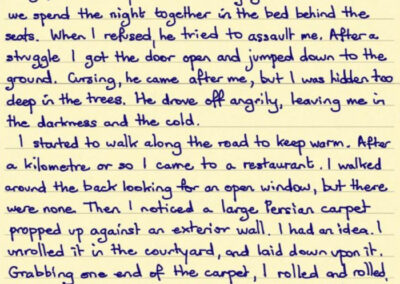 we spend the night together in the bed behind the
seats. When I refused, he tried to assault me. After a
struggle I got the door open and jumped down to the
ground. Cursing, he came after me, but I was hidden too
deep in the trees. He drove off angrily, leaving me in
the darkness and the cold.
I started to walk along the road to keep warm. After
a kilometre or so I came to a restaurant. I walked
around the back looking for an open window, but there
were none. Then I noticed a large Persian carpet
propped up against an exterior wall. I had an idea. I
unrolled it in the courtyard, and laid down upon it.
Grabbing one end of the carpet, I rolled and rolled,